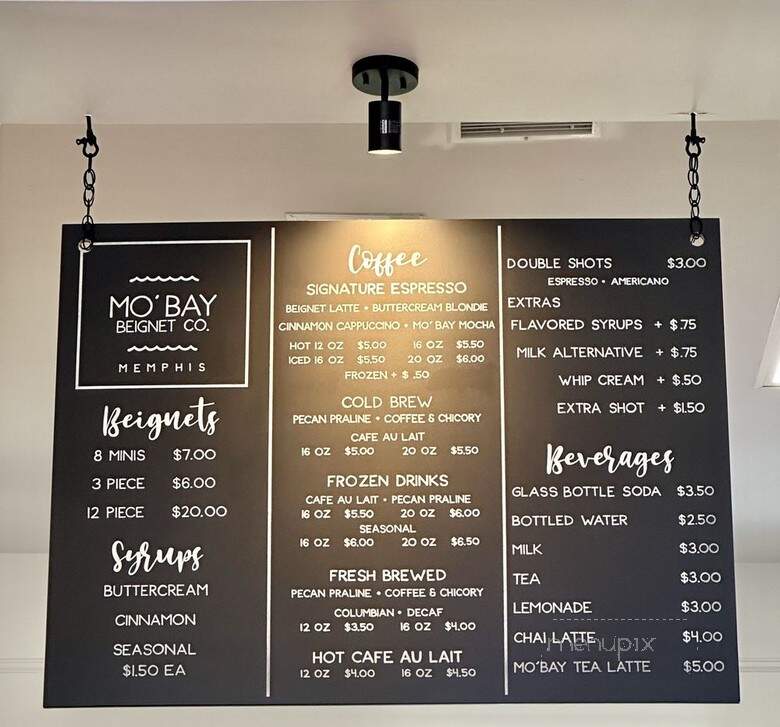 MO'BAY
BEIGNET CO.
MEMPHIS
Beignets
8 MINIS $7.00
3 PIECE $6.00
12 PIECE $20.00
Syrups
BUTTERCREAM
CINNAMON
SEASONAL
$1.50 EA
Coffee
SIGNATURE ESPRESSO
BEIGNET LATTE • BUTTERCREAM BLONDIE
CINNAMON CAPPUCCINO • MO'BAY MOCHA
HOT 12 OZ $5.00 16 OZ $5.50
ICED 16 OZ $5.50 20 OZ $6.00
FROZEN + $ .50
COLD BREW
PECAN PRALINE • COFFEE & CHICORY
CAFE AU LAIT
16 OZ $5.00 20 OZ $5.50
FROZEN DRINKS
CAFE AU LAIT • PECAN PRALINE
16 OZ $5.50 20 OZ $6.00
SEASONAL
16 OZ $6.00 20 OZ $6.50
FRESH BREWED
PECAN PRALINE • COFFEE & CHICORY
COLUMBIAN • DECAF
12 OZ $3.50 16 OZ $4.00
HOT CAFE AU LAIT
12 OZ $4.00 16 OZ $4.50
DOUBLE SHOTS $3.00
ESPRESSO • AMERICANO
EXTRAS
FLAVORED SYRUPS + $.75
MILK ALTERNATIVE + $.75
WHIP CREAM + $.50
EXTRA SHOT + $1.50
Beverages
GLASS BOTTLE SODA $3.50
BOTTLED WATER $2.50
MILK $3.00
TEA $3.00
LEMONADE $3.00
CHAI LATTE $4.00
menupix
MO'BAY TEA LATTE $5.00